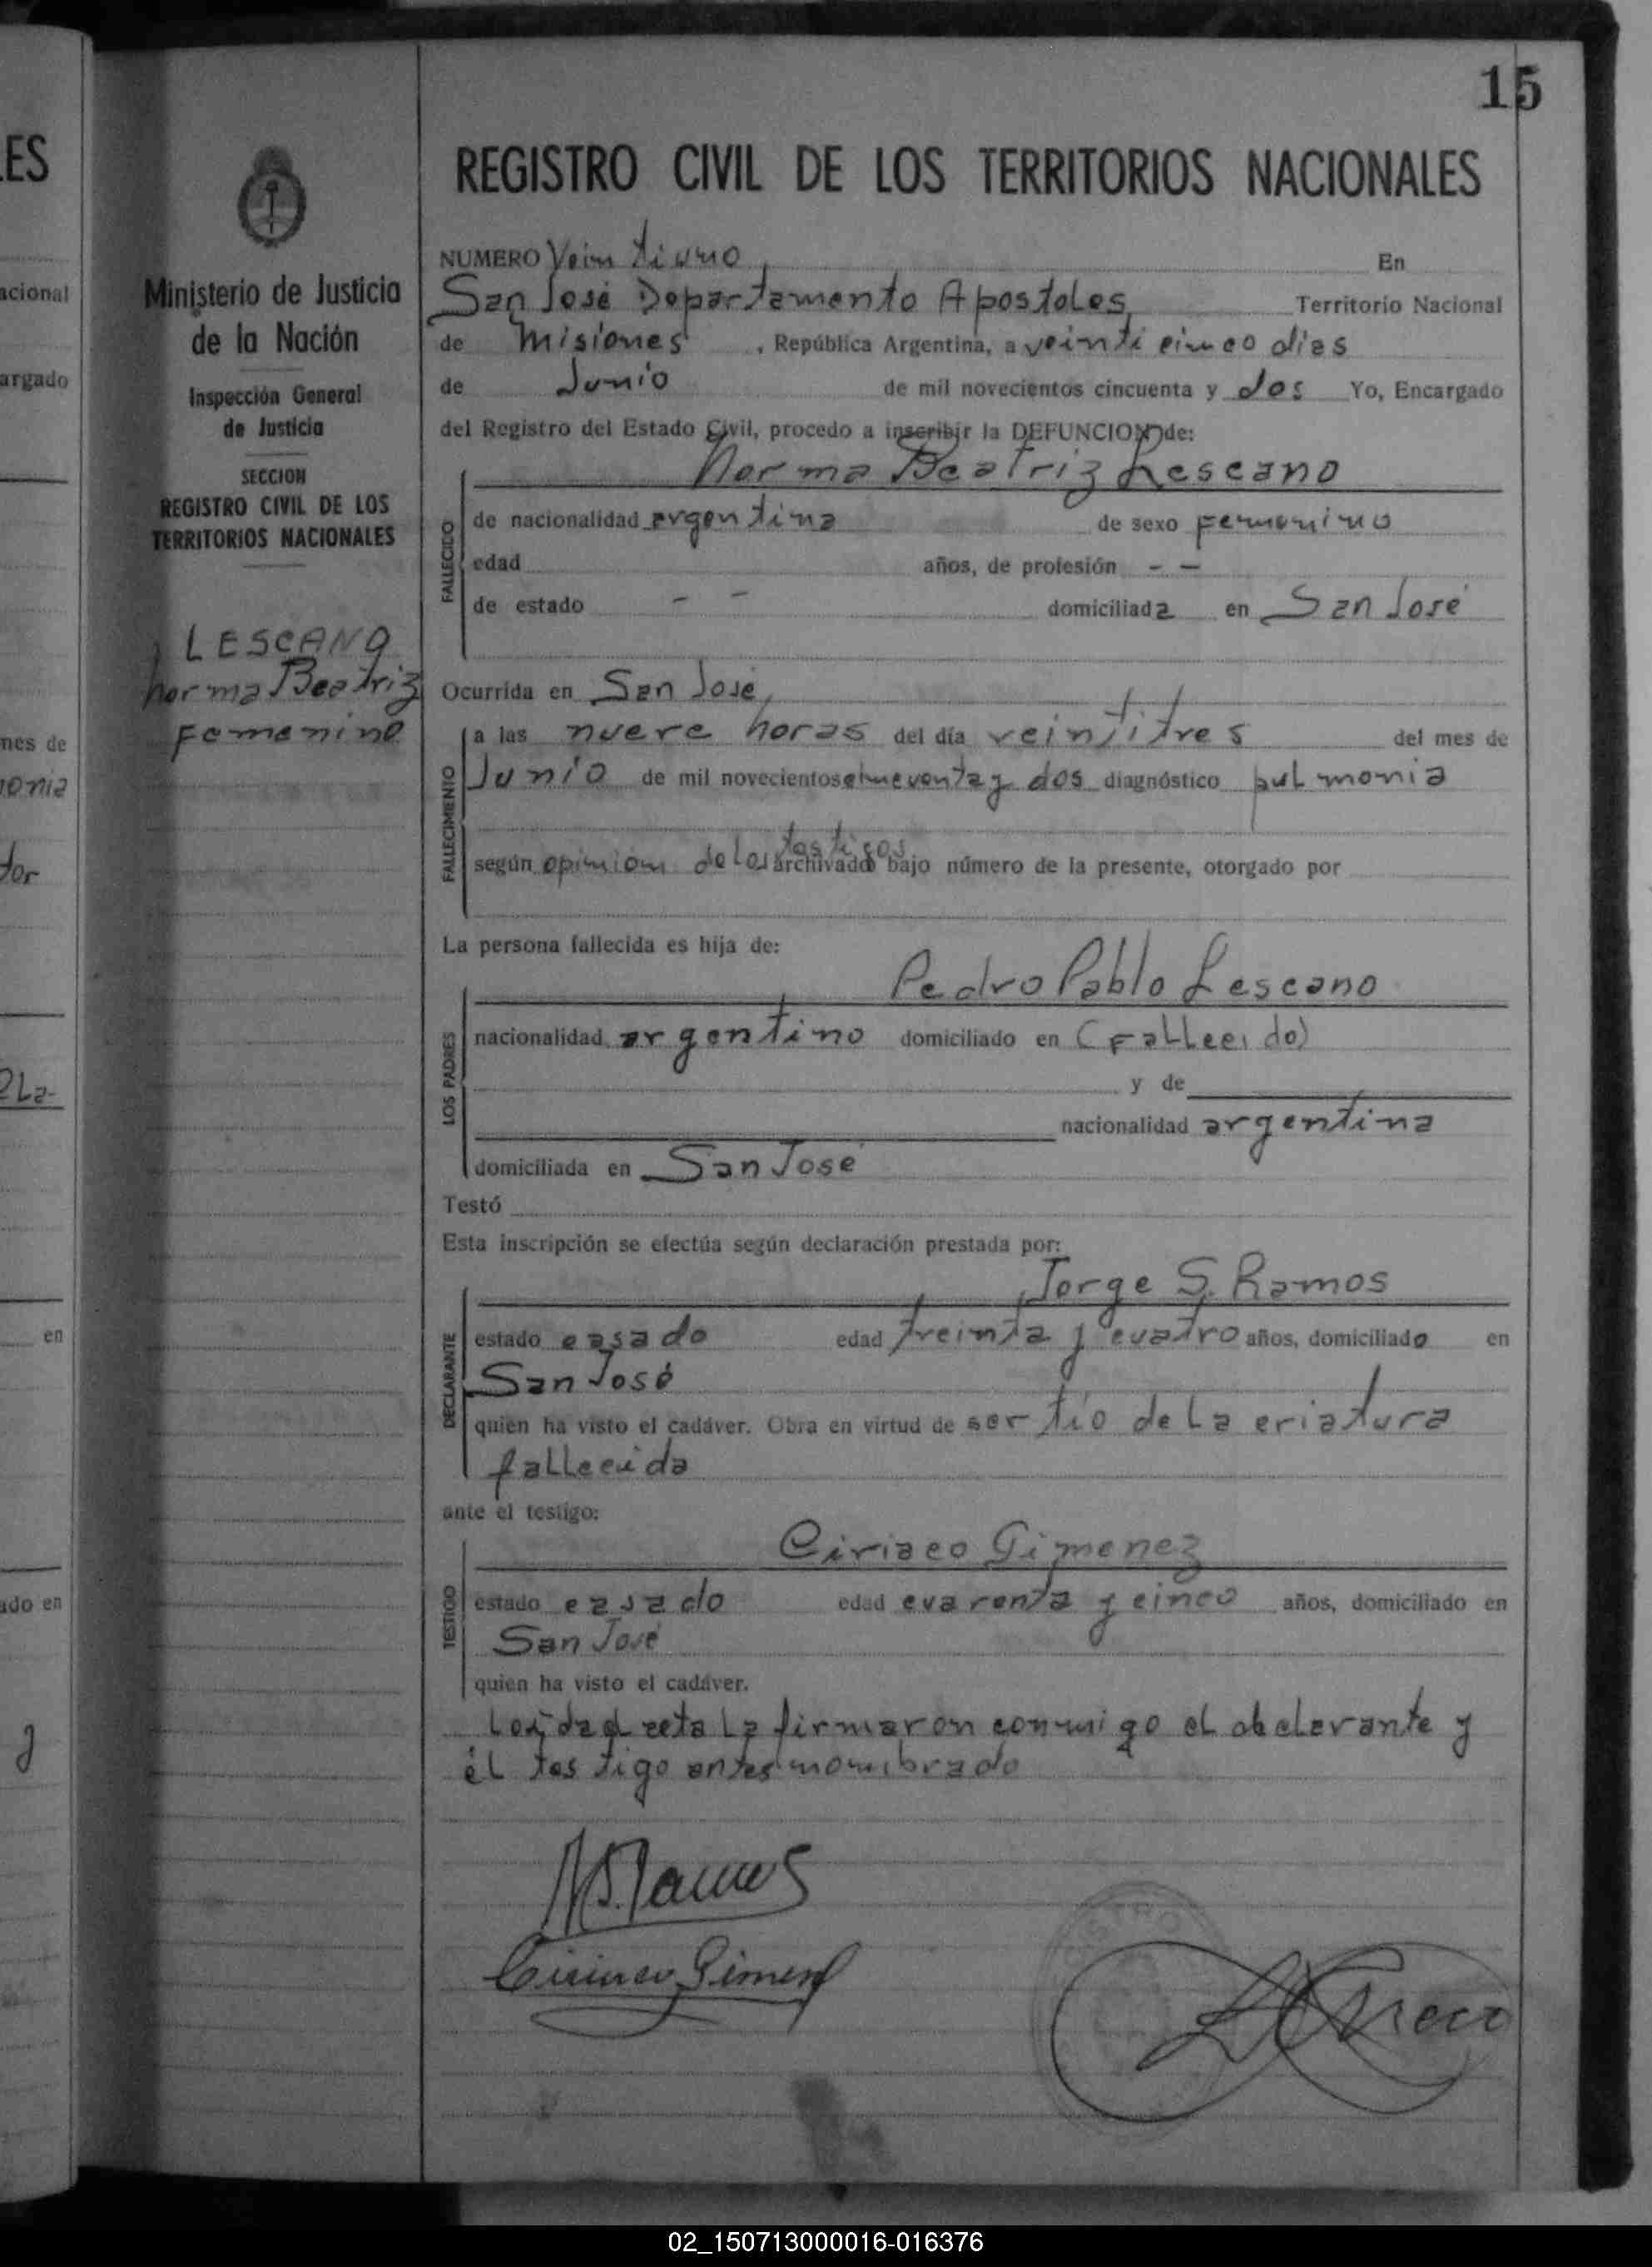 15
REGISTRO CIVIL DE LOS TERRITORIOS NACIONALES
Ministerio de Justicia
de la Nación
Inspección General
de Justicia
SECCION
REGISTRO CIVIL DE LOS
TERRITORIOS NACIONALES
LESCANO
Norma Beatriz
Femenino
NUMERO Veintiuno En
San José Departamento Apostoles, Territorio Nacional
de Misiones , República Argentina, a veinticinco dias
de Junio de mil novecientos cincuenta y dos Yo, Encargado
del Registro del Estado Civil, procedo a inscribir la DEFUNCION de:
Norma Beatriz Lescano
FALLECIDO
de nacionalidad argentina de sexo femenino
edad años, de profesión - -
de estado - - domiciliada en San José
Ocurrida en San José,
FALLECIMIENTO
a las nueve horas del día veintitres del mes de
Junio de mil novecientos cincuenta y dos diagnóstico pulmonia
según opinion de los testigos archivado bajo número de la presente, otorgado por
La persona fallecida es hija de:
Pedro Pablo Lescano
LOS PADRES
nacionalidad argentino domiciliado en (Fallecido)
y de
nacionalidad argentina
domiciliada en San José
Testó
Esta inscripción se efectúa según declaración prestada por:
Jorge S. Ramos
DECLARANTE
estado casado edad treinta y cuatro años, domiciliado en
San José
quien ha visto el cadáver. Obra en virtud de ser tío de la criatura
fallecida
ante el testigo:
Ciriaco Gimenez
TESTIGO
estado casado edad cuarenta y cinco años, domiciliado en
San José
quien ha visto el cadáver.
Leída el acta la firmaron conmigo el declarante y
él testigo antes nombrado
Ciriaco Gimenez
ES
acional
argado
nes de
onia
tor
La-
en
ado en
y
02_150713000016-016376